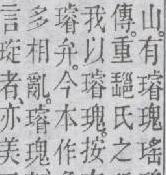 山。有璿瑰瑤
傳。重氏之
我以璿瑰。按
璿弁。今本作
多相亂。璿瑰
言琁者、亦美